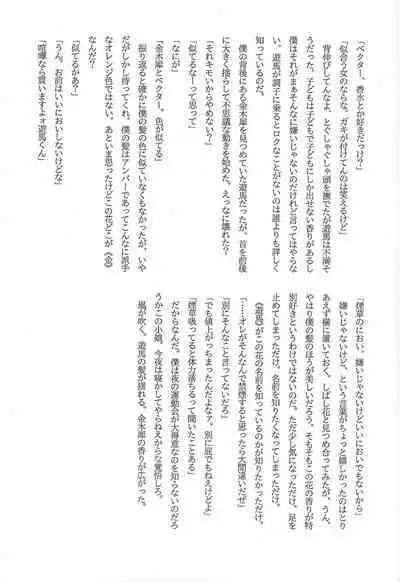 「ベクター、香水とか好きだっけ？」
「似合う女のならな。ガキが付けてんのは笑えるけど」
背伸びしてんなよ、とぐしゃぐしゃ頭を撫でたが遊馬は不満そ
うだった。子どもは子どもで子どもにしか出せない香りがあるし
僕はそれがまぁそんなに嫌いじゃないのだけれど言ってはやらな
い。遊馬が調子に乗るとロクなことがないのは誰よりも詳しく
知っているのだ。
僕の背後にある金木犀を見つめていた遊馬だったが、首を前後
に大きく揺らして不思議な動きを始めた。えっなに壊れた？
「それキモいからやめない？」
「似てるなーって思って」
「なにが」
「金木犀とベクター。色が似てる」
振り返ると確かに僕の髪の色に似ていなくもなかったが、いや
だがしかし待ってくれ。僕の髪はアンバーであってこんなに派手
なオレンジ色では、あといま思ったけどこの花どこが《金》
なんだ？
「似てるがあ？」
「うん。お前はいいにおいしないけどな」
「喧嘩なら買いますよォ遊馬くん」
「煙草のにおい、嫌いじゃないけどいいにおいでもないから」
嫌いじゃないけど、という言葉がちょっと嬉しかったのはとり
あえず横に置いておく。しばし花と見つめ合ってみたが、うん、
やはり僕の髪のほうが美しいだろう。そもそもこの花の香りが特
別好きというわけではないのだ。ただ少し気になっただけ。足を
止めてしまっただけ。名前を知りたくなってしまっただけ。
《遊馬》がこの花の名前を知っているのか知りたかっただけ。
「……オレがそんなんで禁煙すると思ったら大間違いだぜ」
「別にそんなこと言ってないだろ」
「でも値上がっちまったんだよなァ。別に屁でもねえけどよ」
「煙草吸ってると体力落ちるって聞いたことある」
だからなんだ。僕は夜の運動会が大得意なのを知らないのだろ
うかこの小娘。今夜は寝かしてやらねえから覚悟しろ。
風が吹く。遊馬の髪が揺れる。金木犀の香りが広がった。